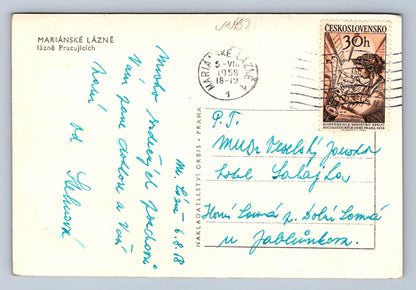 MARIÁNSKÉ LÁZNĚ
lázně Pracujících
Mnoho srdečných pozdravů
Vám pane doktore a Vaší
paní
od
M. Lázně 6.8.58
NAKLADATELSTVÍ ORBIS - PRAHA
MARIÁNSKÉ LÁZNĚ
5-VIII
1958
18-19
1
ČESKOSLOVENSKO
30h
KONFERENCE MINISTRŮ SPOJŮ
SOCIALISTICKÝCH ZEMÍ PRAHA 1958
P. T.
MUDr Veselský
Horní Lomná p. Dolní Lomná
u Jablůnkova